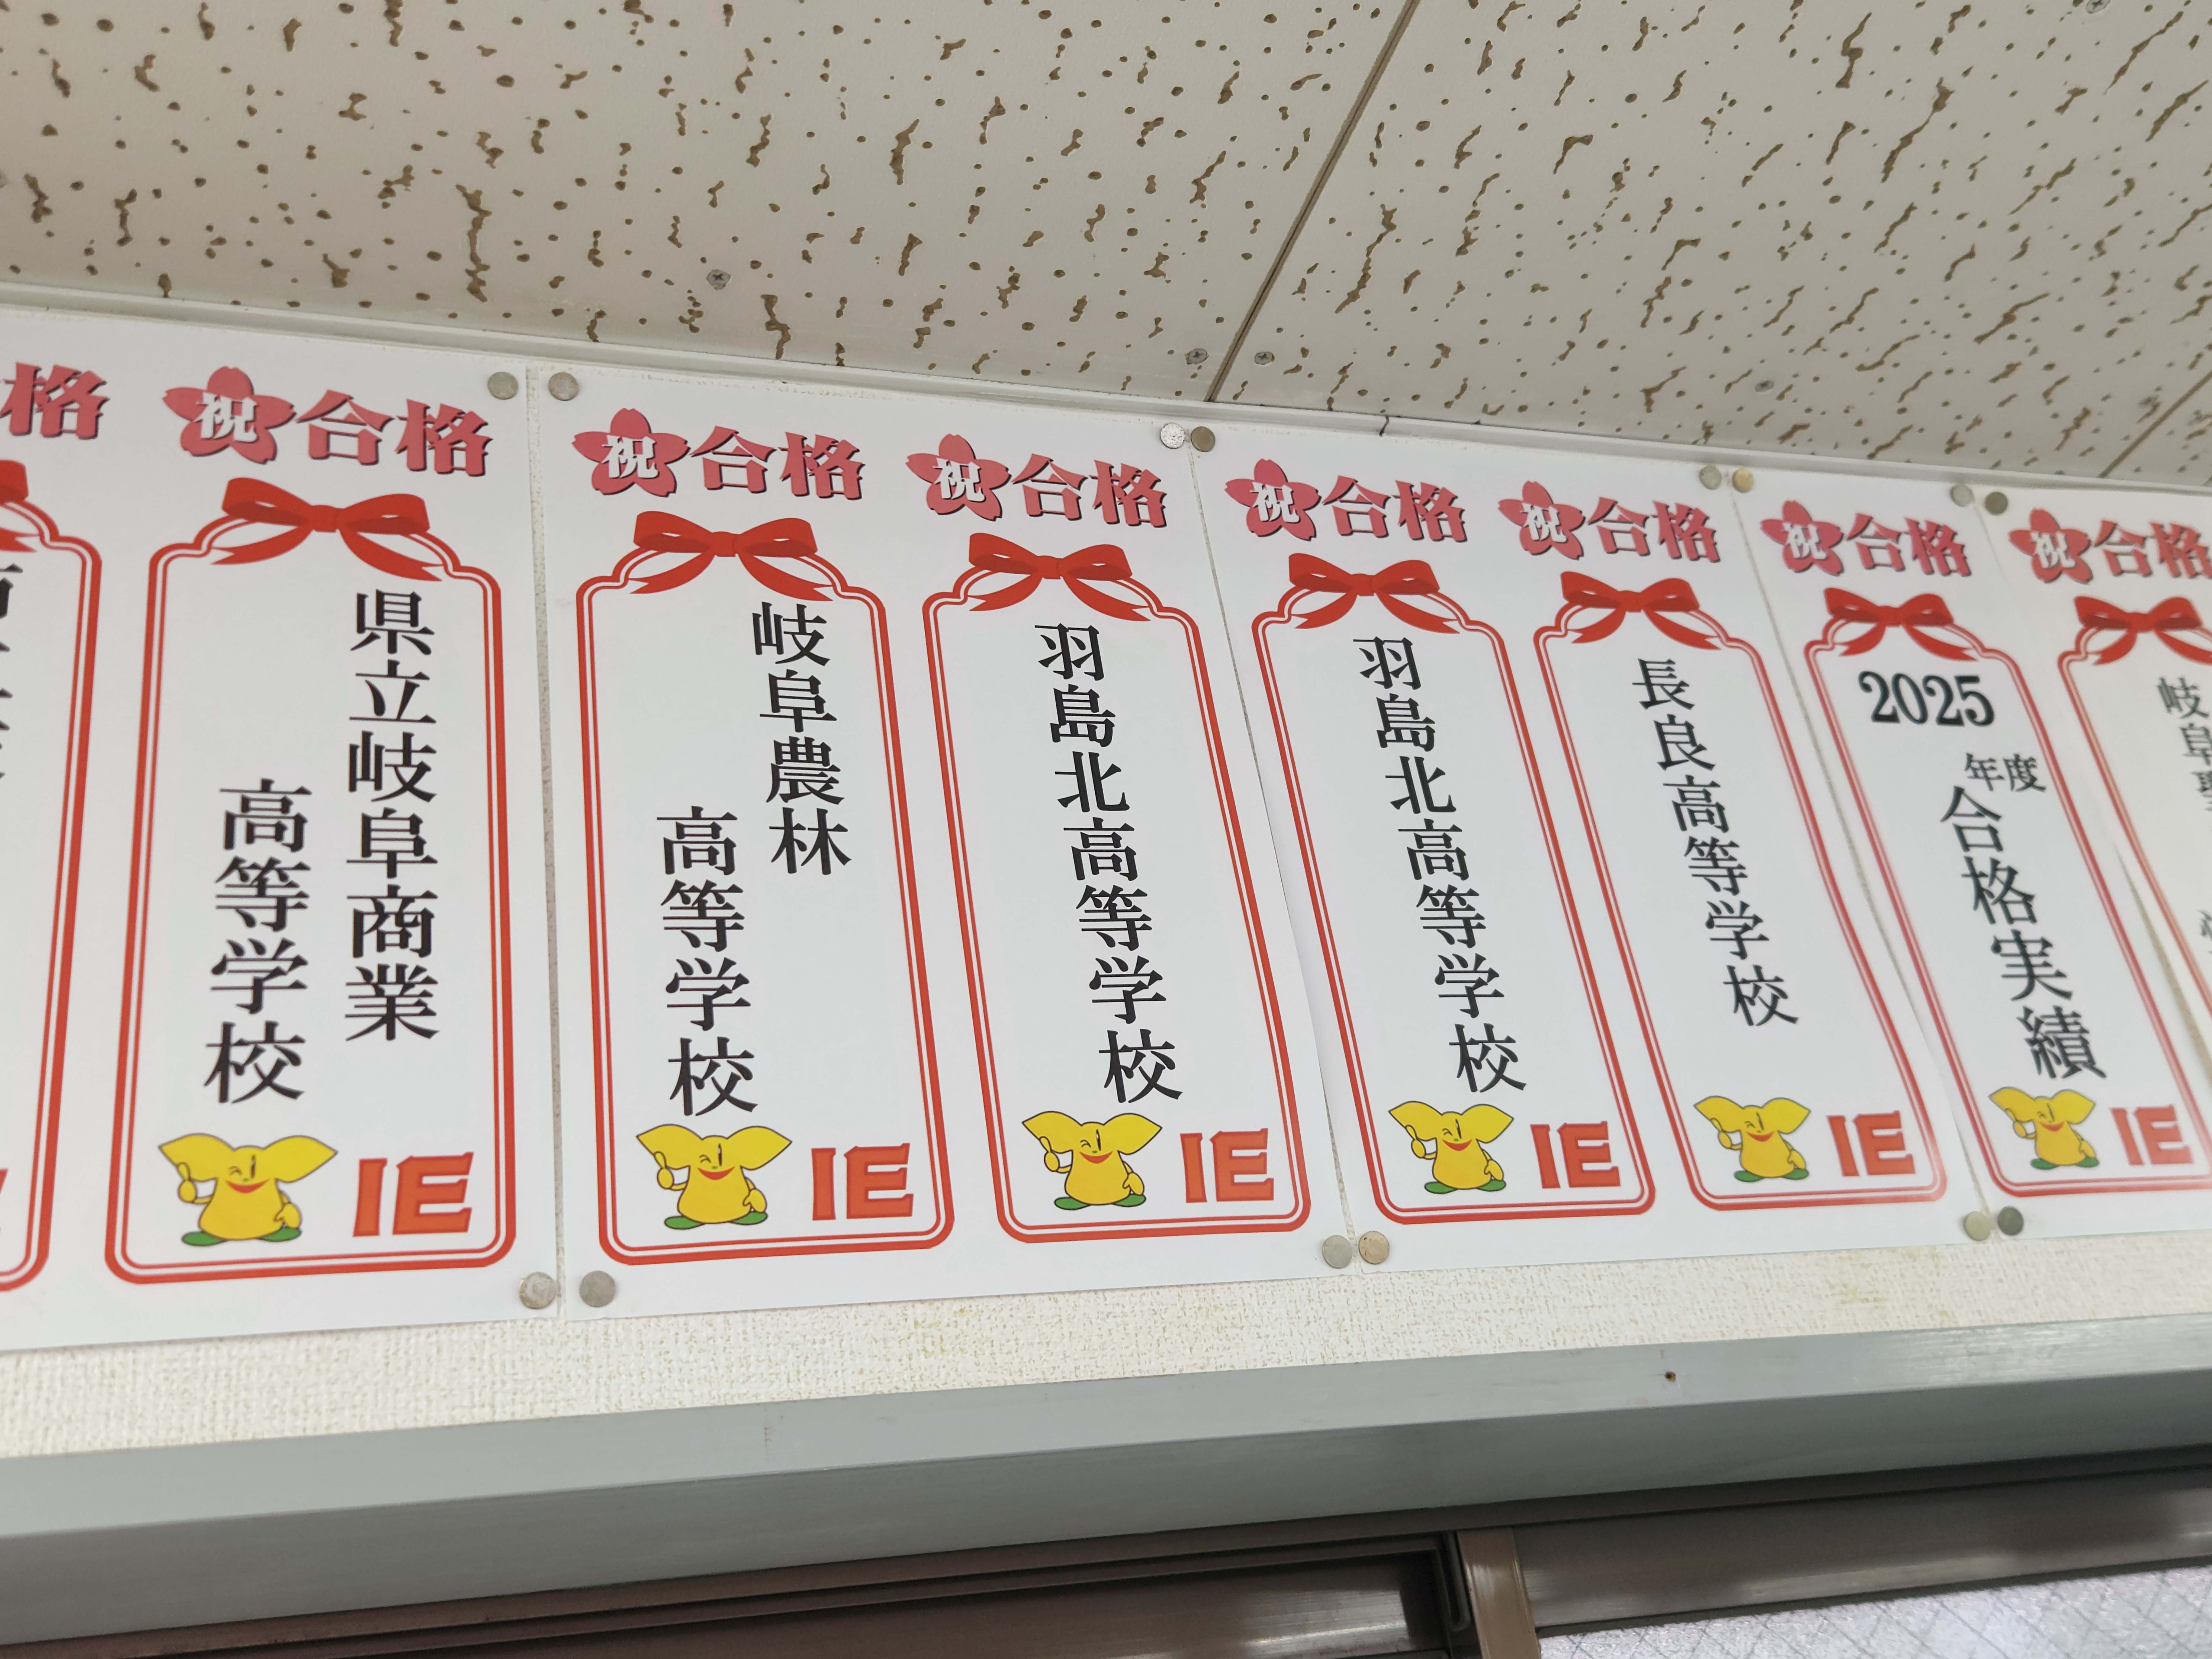 格
祝合格
県立岐阜商業
高等学校
IE
祝合格
岐阜農林
高等学校
IE
祝合格
羽島北高等学校
IE
祝合格
羽島北高等学校
IE
祝合格
長良高等学校
IE
祝合格
2025
年度
合格実績
IE
祝合格
岐阜聖